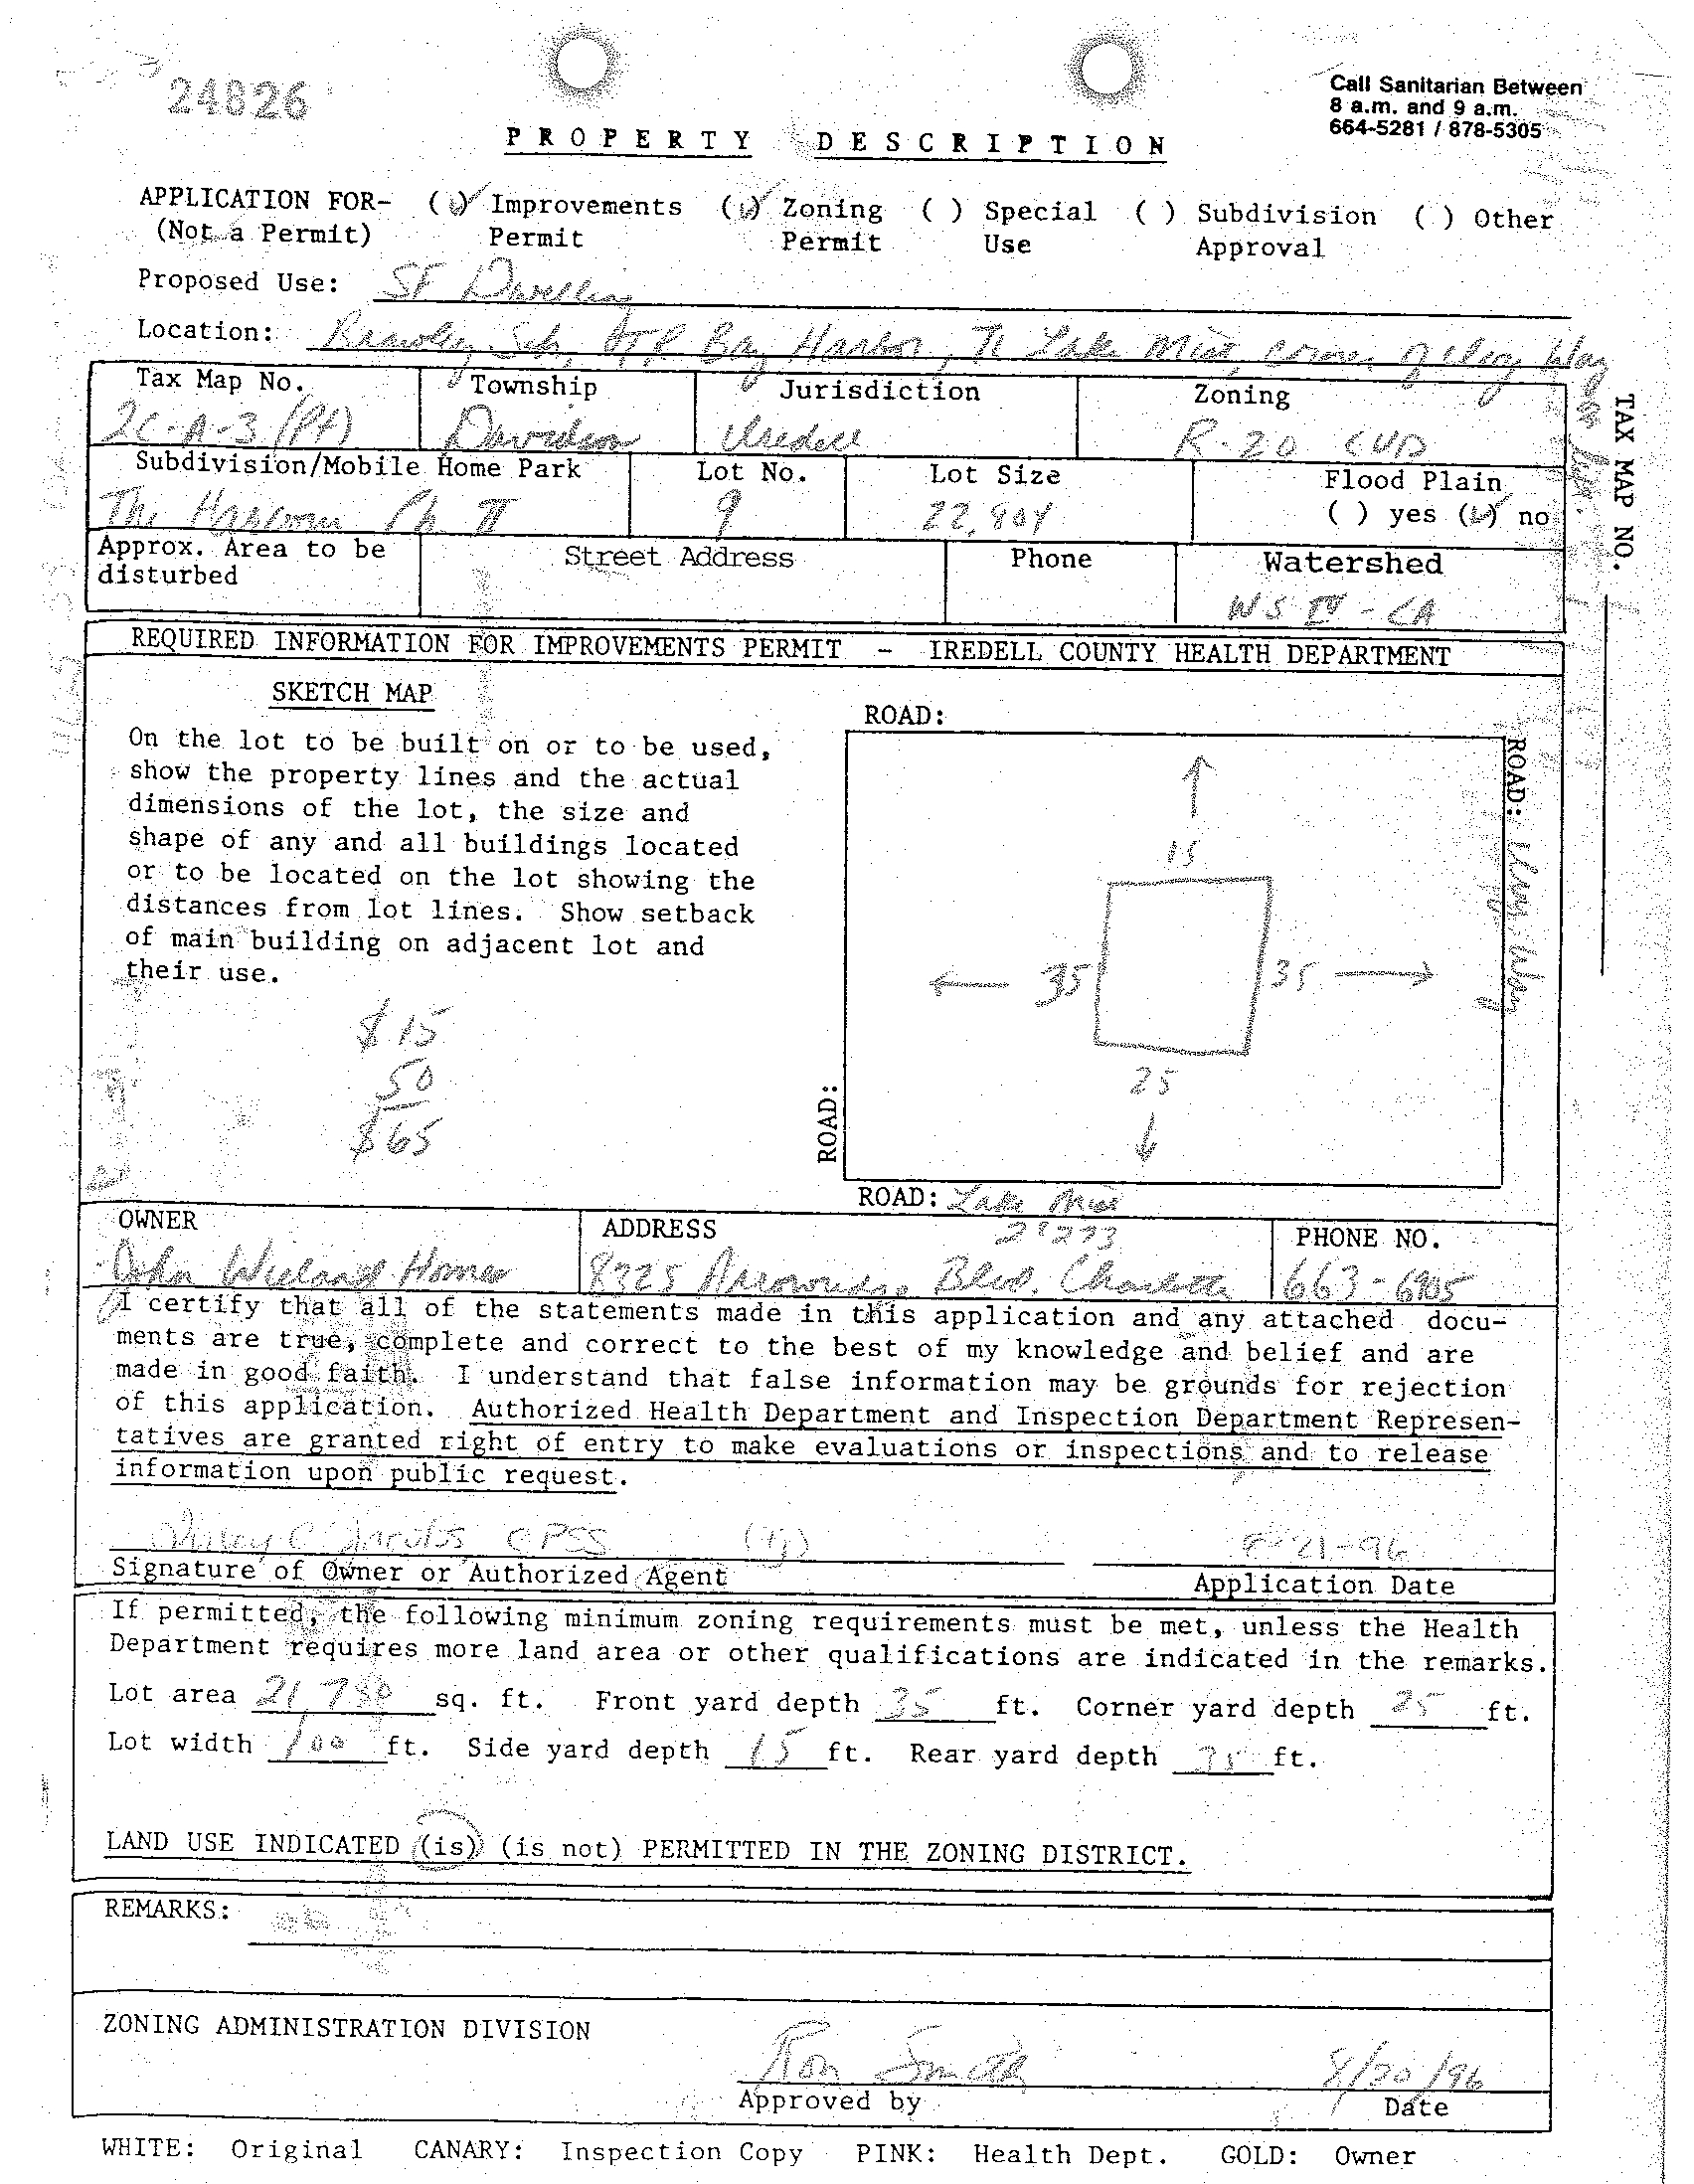 24826
Call Sanitarian Between
8 a.m. and 9 a.m.
664-5281 / 878-5305
PROPERTY DESCRIPTION
APPLICATION FOR- ( ) Improvements ( ) Zoning ( ) Special ( ) Subdivision ( ) Other
(Not a Permit) Permit Permit Use Approval
Proposed Use: SF Dwelling
Location: Brawley Sch, Bay Harbor, TL Lake Mist, corner of
Tax Map No. Township Jurisdiction Zoning
2C-A-3 (Pt) Davidson Iredell R-20 CUD
Subdivision/Mobile Home Park Lot No. Lot Size Flood Plain
The Ph II 9 22,904 ( ) yes ( ) no
Approx. Area to be disturbed Street Address Phone Watershed
WS IV - CA
TAX MAP NO.
REQUIRED INFORMATION FOR IMPROVEMENTS PERMIT - IREDELL COUNTY HEALTH DEPARTMENT
SKETCH MAP
On the lot to be built on or to be used,
show the property lines and the actual
dimensions of the lot, the size and
shape of any and all buildings located
or to be located on the lot showing the
distances from lot lines. Show setback
of main building on adjacent lot and
their use.
$15
50
$65
ROAD:
ROAD:
15
35 35
25
ROAD:
ROAD: Lake Mist
OWNER ADDRESS PHONE NO.
28273
John Wieland Homes 8325 Arrowridge Blvd. Charlotte 663-6905
I certify that all of the statements made in this application and any attached docu-
ments are true, complete and correct to the best of my knowledge and belief and are
made in good faith. I understand that false information may be grounds for rejection
of this application. Authorized Health Department and Inspection Department Represen-
tatives are granted right of entry to make evaluations or inspections and to release
information upon public request.
CPSS 21-96
Signature of Owner or Authorized Agent Application Date
If permitted, the following minimum zoning requirements must be met, unless the Health
Department requires more land area or other qualifications are indicated in the remarks.
Lot area 21,780 sq. ft. Front yard depth 35 ft. Corner yard depth 25 ft.
Lot width 100 ft. Side yard depth 15 ft. Rear yard depth ft.
LAND USE INDICATED (is) (is not) PERMITTED IN THE ZONING DISTRICT.
REMARKS:
ZONING ADMINISTRATION DIVISION
Ron Smith 8/20/96
Approved by Date
WHITE: Original CANARY: Inspection Copy PINK: Health Dept. GOLD: Owner